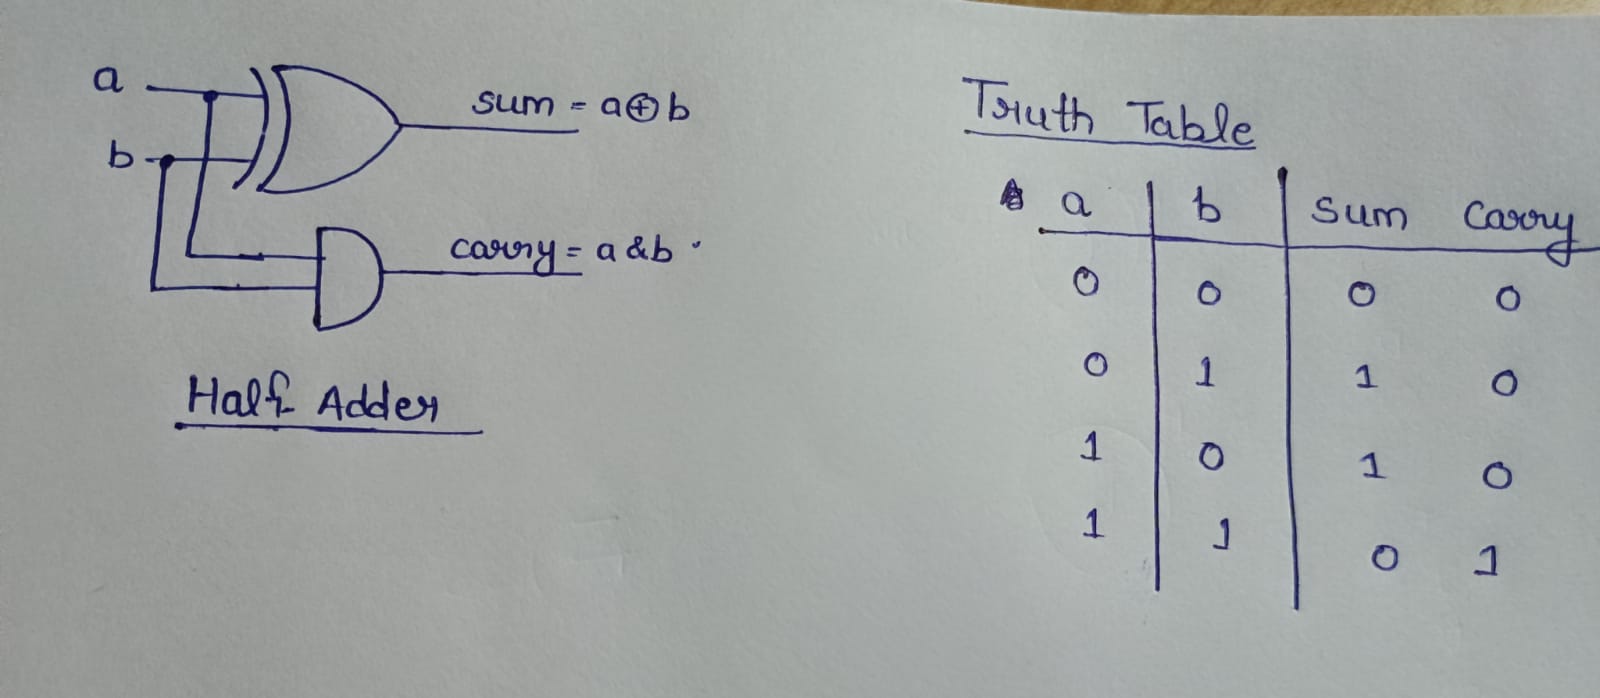 a
sum = a⊕b
b
carry = a & b
Half Adder
Truth Table
a b sum carry
0 0 0 0
0 1 1 0
1 0 1 0
1 1 0 1